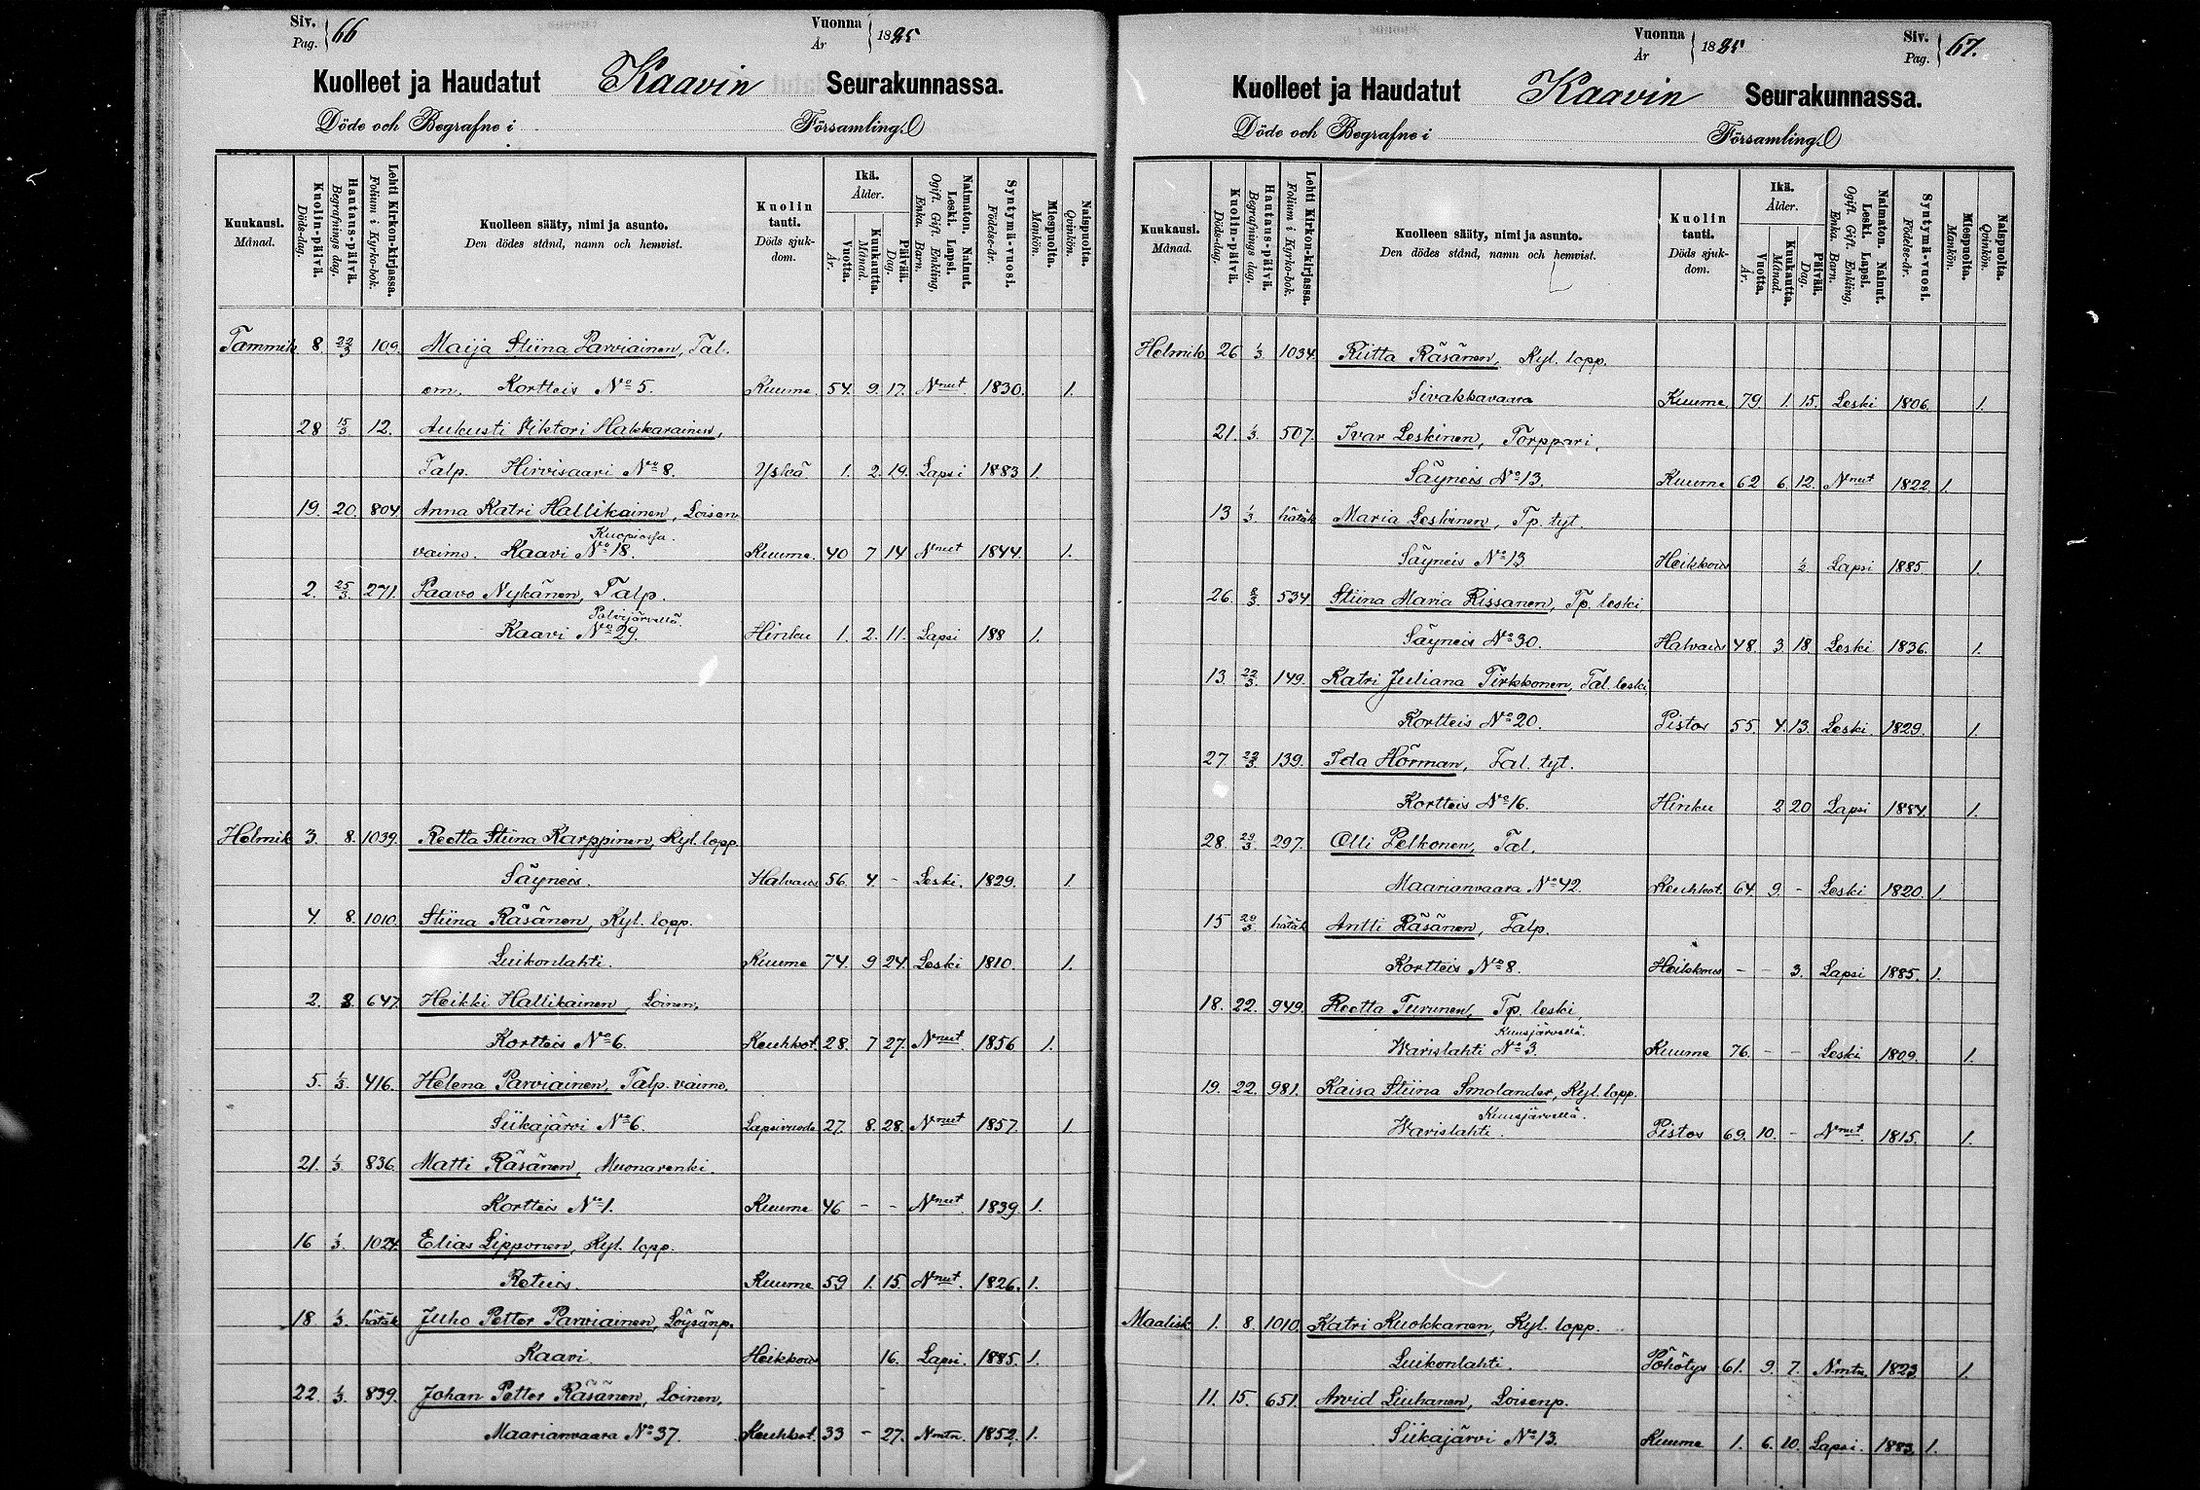 Siv. Pag. 66 Vuonna År 1885
Kuolleet ja Haudatut Kaavin Seurakunnassa.
Döde och Begrafne i Församling.
Kuukausi. Månad. Kuolin-päivä. Döds-dag. Hautaus-päivä. Begrafnings dag. Lehti Kirkon-kirjassa. Folium i Kyrko-bok. Kuolleen sääty, nimi ja asunto. Den dödes stånd, namn och hemvist. Kuolin tauti. Döds sjuk-dom. Ikä. Ålder. Vuotta. År. Kuukautta. Månad. Päivää. Dag. Naimaton. Nainut. Leski. Lapsi. Ogift. Gift. Enkling, Enka. Barn. Syntymä-vuosi. Födelse-år. Miespuolta. Mankön. Naispuolta. Qvinkön.
Tammik 8. 22/3 109. Maija Stiina Parviainen, Tal.
em. Kortteis No 5. Kuume. 54. 9. 17. Nnut 1830. 1.
28 15/3 12. Aukusti Viktori Hakkarainen,
Talp. Hirvisaari No 8. Yskä 1. 2. 19. Lapsi 1883 1.
19. 20. 804 Anna Katri Hallikainen, Loisen
Kuopiossa.
vaimo. Kaavi No 18. Kuume. 40 7 14 Nnut 1844. 1.
2. 25/3 271. Paavo Nykänen, Talp.
Palvijärvellä.
Kaavi No 29. Hinku 1. 2. 11. Lapsi 188 1.
Helmik 3. 8. 1039. Reetta Stiina Karppinen, Kyl. lopp.
Säyneis. Halvaus 56. 4. - Leski. 1829. 1
4. 8. 1010. Stiina Räsänen, Kyl. lopp.
Luikonlahti. Kuume 74. 9 24. Leski 1810. 1.
2. 8. 647. Heikki Hallikainen, Loinen,
Kortteis No 6. Keuhkot. 28. 7 27. Nnut. 1856 1.
5. 1/3 416. Helena Parviainen, Talp. vaimo.
Siikajärvi No 6. Lapsivuode 27. 8. 28. Nnut 1857 1
21. 1/3 836. Matti Räsänen, Muonarenki.
Kortteis No 1. Kuume 46 - - Nnut. 1839 1.
16 1/3. 1024. Elias Lipponen, Kyl. lopp.
Retuis. Kuume 59 1. 15. Nnut. 1826. 1.
18 1/3. hätäk Juho Petter Parviainen, Löysänp.
Kaavi. Heikkous 16. Lapsi. 1885. 1.
22. 1/3. 839. Johan Petter Räsänen, Loinen,
Maarianvaara No 37. Keuhkot. 33 - 27. Nmtn. 1852. 1.
Vuonna År 1885 Siv. Pag. 67.
Kuolleet ja Haudatut Kaavin Seurakunnassa.
Döde och Begrafne i Församling.
Kuukausi. Månad. Kuolin-päivä. Döds-dag. Hautaus-päivä. Begrafnings dag. Lehti Kirkon-kirjassa. Folium i Kyrko-bok. Kuolleen sääty, nimi ja asunto. Den dödes stånd, namn och hemvist. Kuolin tauti. Döds sjuk-dom. Ikä. Ålder. Vuotta. År. Kuukautta. Månad. Päivää. Dag. Naimaton. Nainut. Leski. Lapsi. Ogift. Gift. Enkling, Enka. Barn. Syntymä-vuosi. Födelse-år. Miespuolta. Mankön. Naispuolta. Qvinkön.
Helmik 26 1/3 1034. Riitta Räsänen, Kyl. lopp.
Sivakkavaara Kuume 79. 1. 15. Leski 1806. 1.
21. 1/3. 507. Ivar Leskinen, Torppari.
Säyneis No 13. Kuume 62 6. 12. Nnut 1822. 1.
13 1/3 hätäk Maria Leskinen, Tp. tyt.
Säyneis No 13. Heikkous 1/2 Lapsi 1885. 1.
26. 8/3 534 Stiina Maria Rissanen, Tp. leski
Säyneis No 30. Halvaus 48. 3 18. Leski 1836. 1.
13. 22/3. 149. Katri Juliana Tirkkonen, Tal. leski
Kortteis No 20. Pistos 55. 4. 13. Leski 1829. 1.
27 22/3. 139. Ida Hörman, Tal. tyt.
Kortteis No 16. Hinku 2 20 Lapsi 1884. 1.
28. 29/3 297. Olli Pelkonen, Tal.
Maarianvaara No 42. Keuhkot. 64. 9. - Leski 1820. 1.
15 20/3 hätäk Antti Räsänen, Talp.
Kortteis No 8. Heikkous - - 3. Lapsi 1885. 1.
18. 22. 949. Reetta Turunen, Tp. leski,
Kuusjärvellä.
Warislahti No 3. Kuume 76. - - Leski 1809. 1.
19. 22. 981. Kaisa Stiina Smolander, Kyl. lopp.
Kuusjärvellä.
Warislahti. Pistos 69. 10. - Nnut. 1815. 1.
Maalisk 1. 8. 1010. Katri Kuokkanen, Kyl. lopp.
Luikonlahti. Pöhötys 61. 9. 7. Nmtn. 1823. 1.
11. 15. 651. Arvid Liuhanen, Loisenp.
Siikajärvi No 13. Kuume 1. 6. 10. Lapsi. 1883. 1.